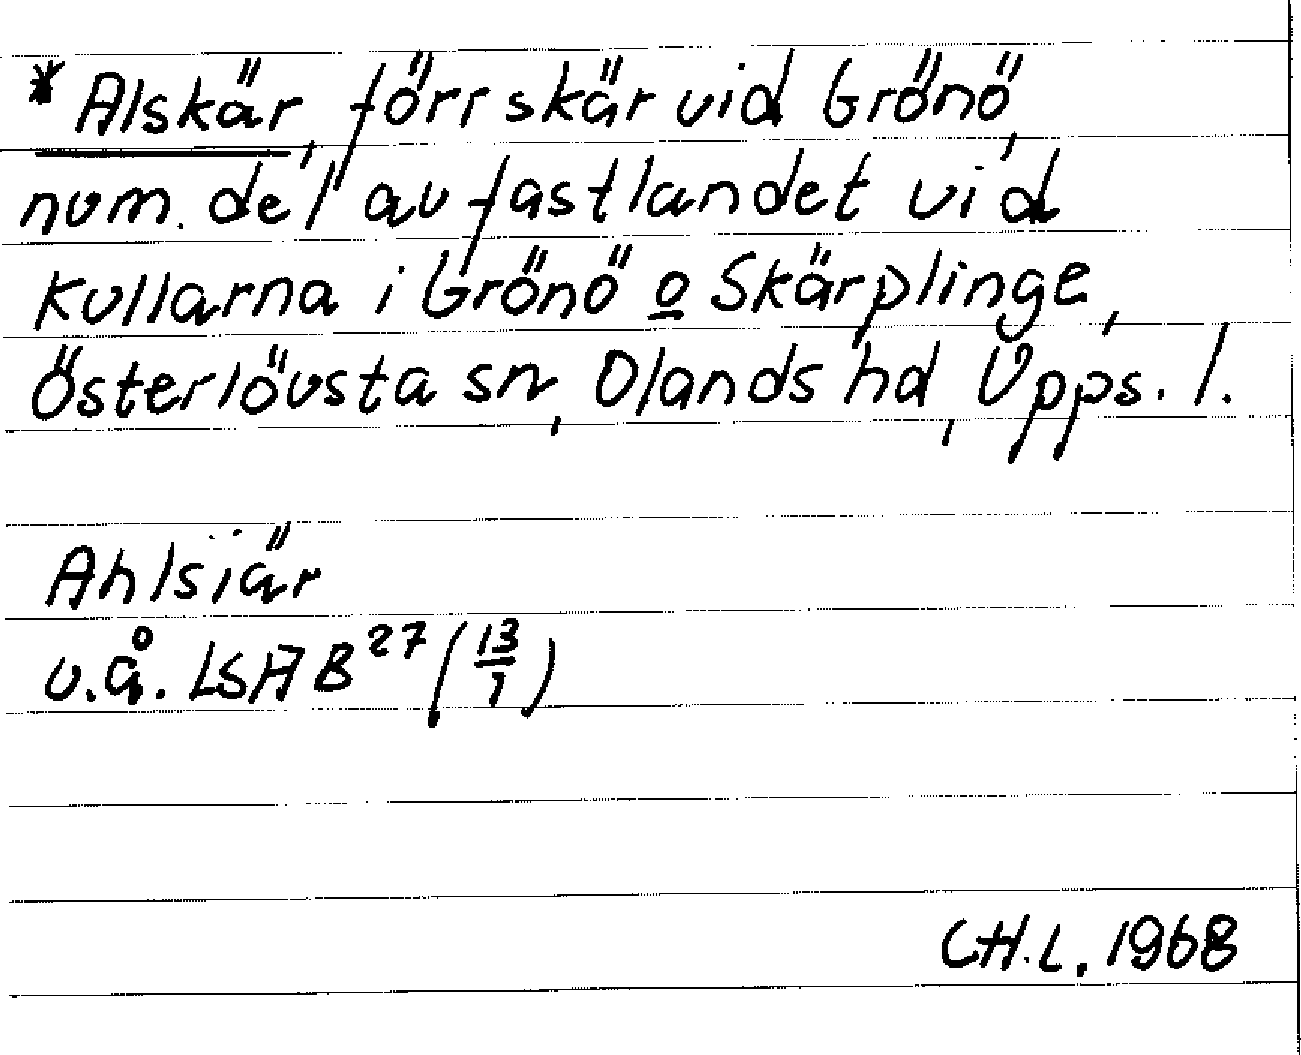 *Alskär, förr skär vid Grönö,
num. del av fastlandet vid
Kullarna i Grönö o Skärplinge,
Österlövsta sn, Olands hd, Upps. l.
Ahlsiär
u.å. LSA B 27 (13/1)
CH.L. 1968